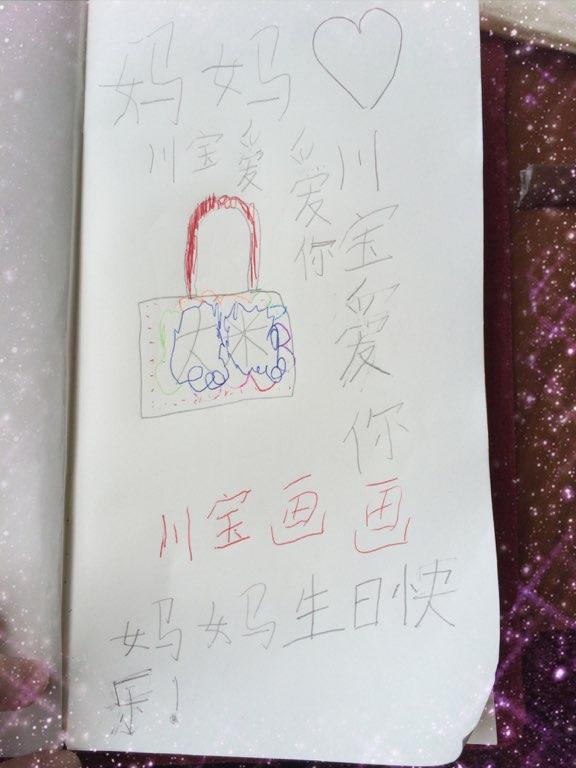 妈妈
川宝爱
爱你
川宝爱你
大米
川宝画画
妈妈生日快
乐!